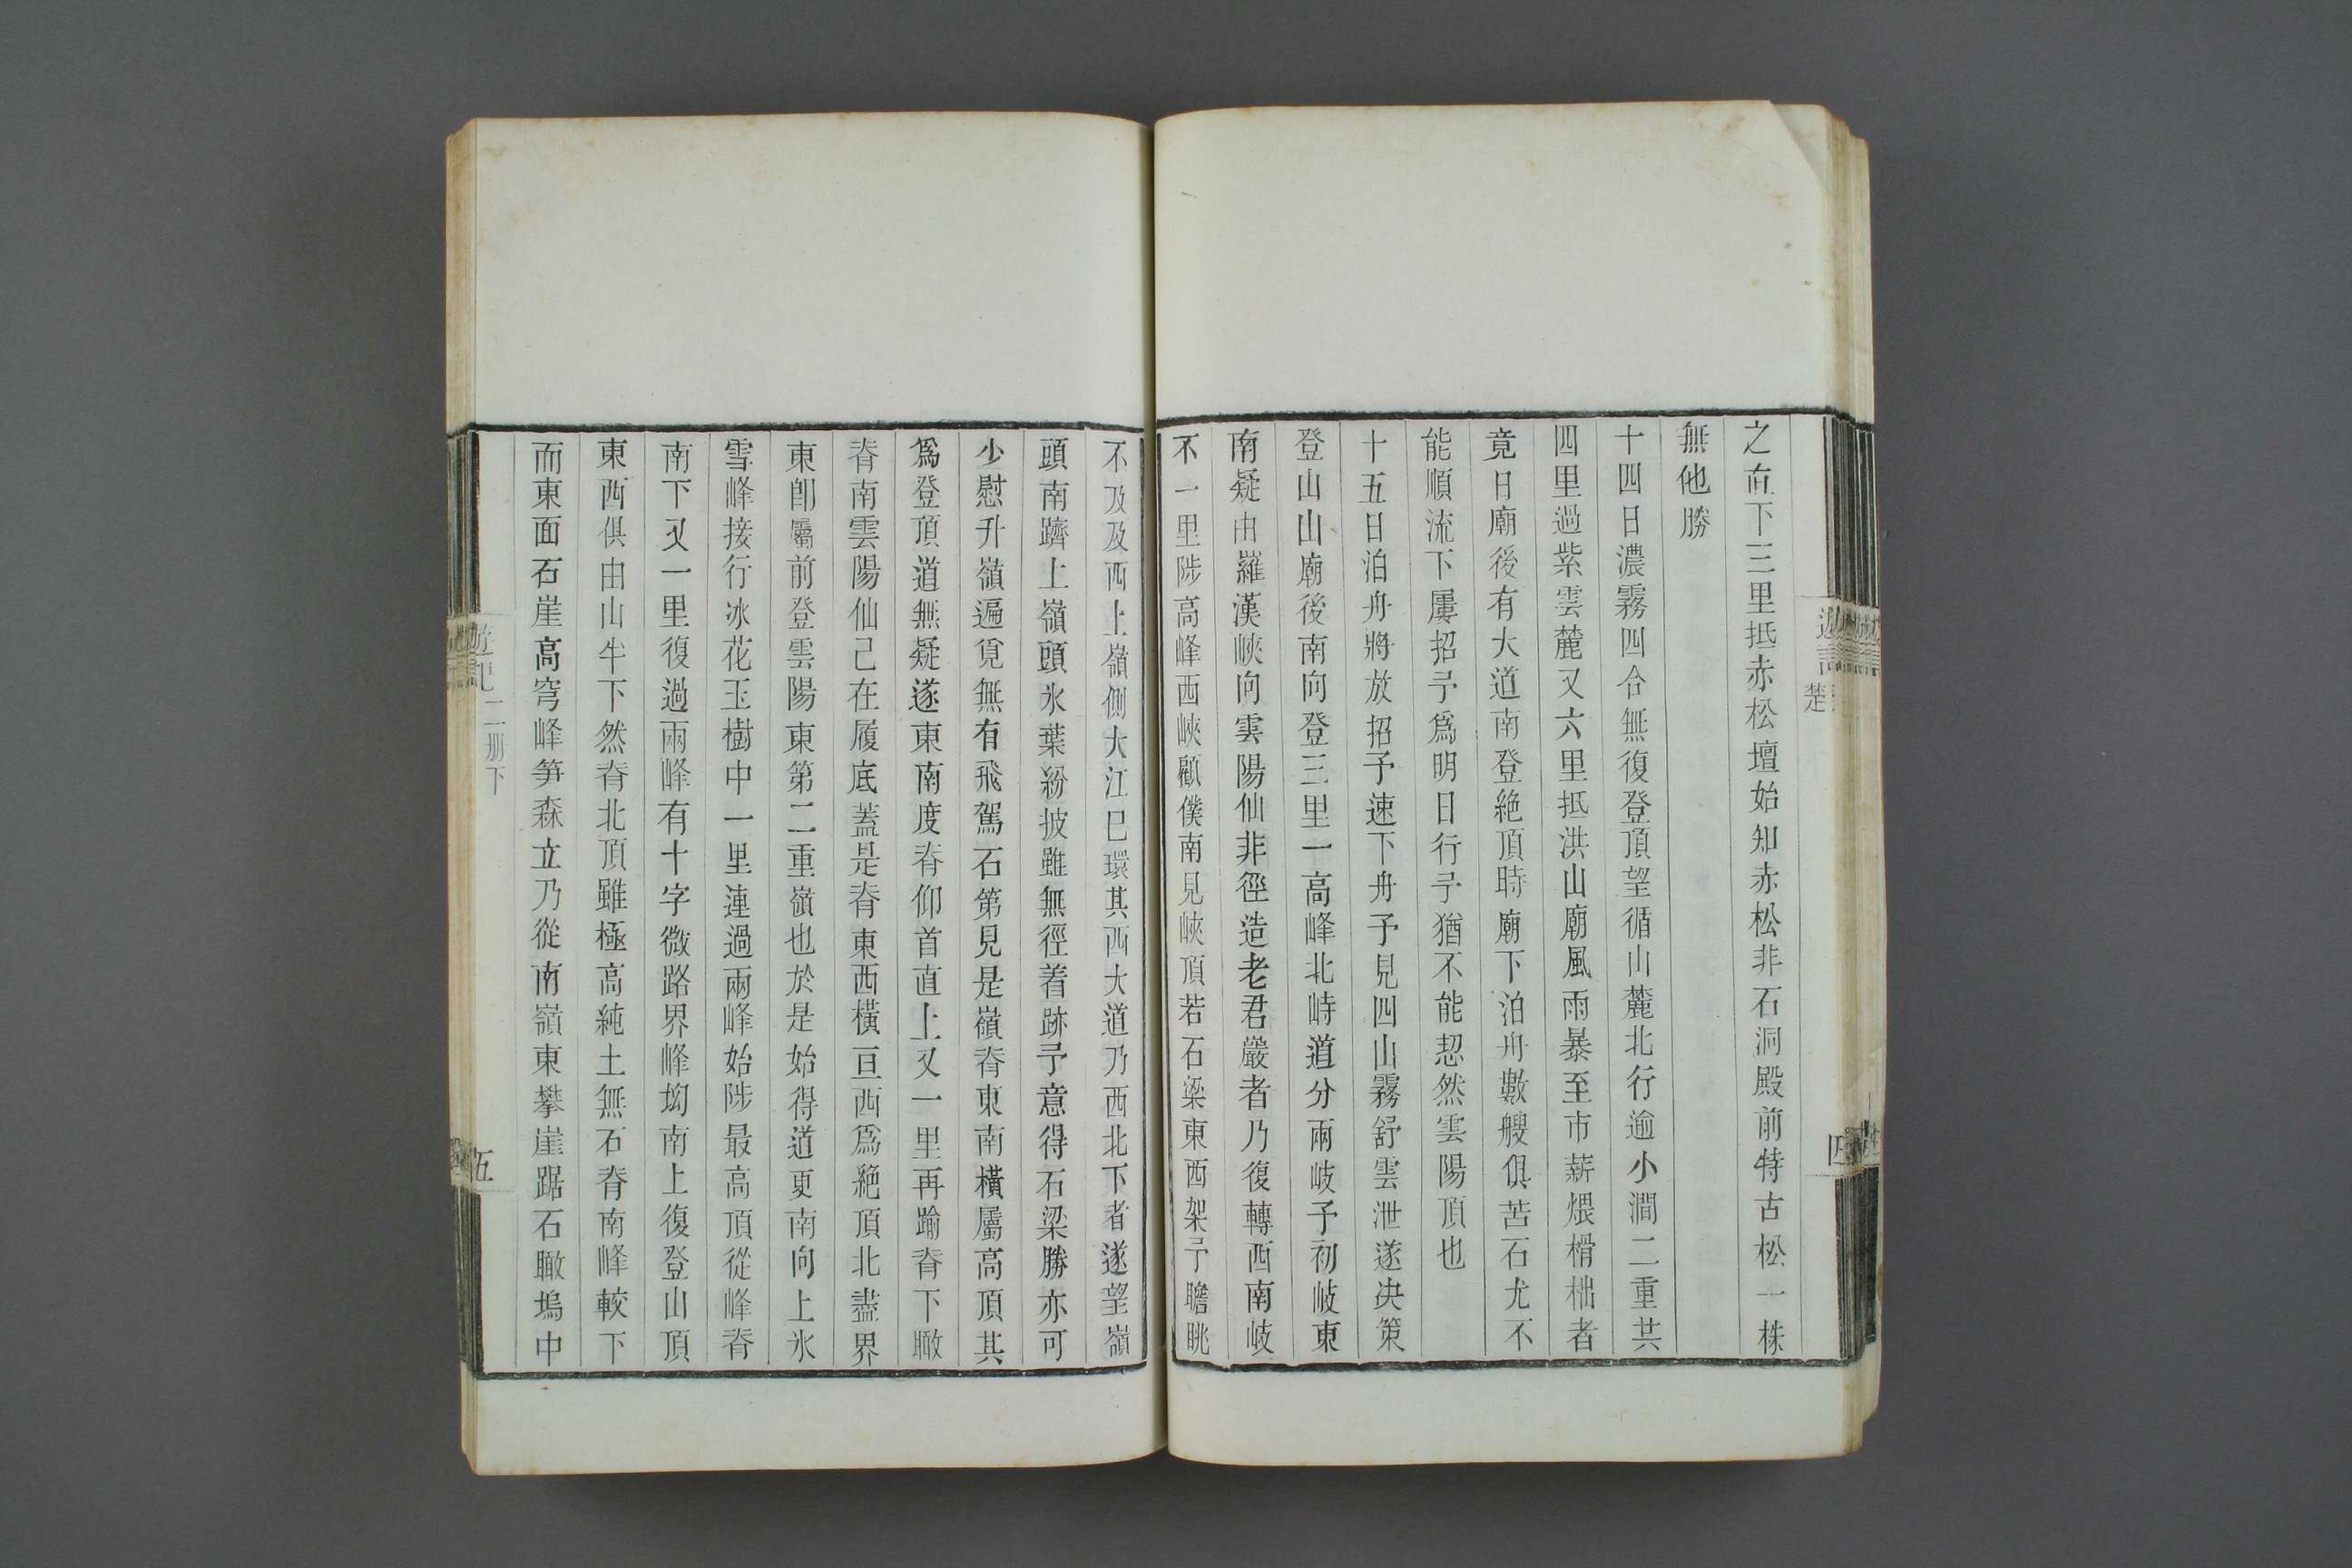 之在下三里抵赤松壇始知赤松非石洞殿前特古松一株
無他勝
十四日濃霧四合無復登頂望循山麓北行逾小澗二重共
四里過紫雲麓又六里抵洪山廟風雨暴至市薪煨榾柮者
竟日廟後有大道南登絶頂時廟下泊舟數艘俱苦石尤不
能順流下屢招予爲明日行予猶不能恝然雲陽頂也
十五日泊舟將放招予速下舟予見四山霧舒雲泄遂决策
登山山廟後南向登三里一高峰北峙道分兩岐予初岐東
南疑由羅漢峽向雲陽仙非徑造老君巖者乃復轉西南岐
不一里陟高峰西峽顧僕南見峽頂若石梁東西架予瞻眺
不及及西上嶺側大江已環其西大道乃西北下者遂望嶺
頭南躋上嶺頭氷葉紛披雖無徑着跡予意得石梁勝亦可
少慰升嶺遍覓無有飛駕石第見是嶺脊東南橫屬高頂其
爲登頂道無疑遂東南度脊仰首直上又一里再踰脊下瞰
脊南雲陽仙已在履底蓋是脊東西橫亘西爲絶頂北盡界
東卽屬前登雲陽東第二重嶺也於是始得道更南向上氷
雪峰接行冰花玉樹中一里連過兩峰始陟最高頂從峰脊
南下又一里復過兩峰有十字微路界峰坳南上復登山頂
東西俱由山半下然脊北頂雖極高純土無石脊南峰較下
而東面石崖高穹峰笋森立乃從南嶺東攀崖踞石瞰塢中
遊記二册下
五